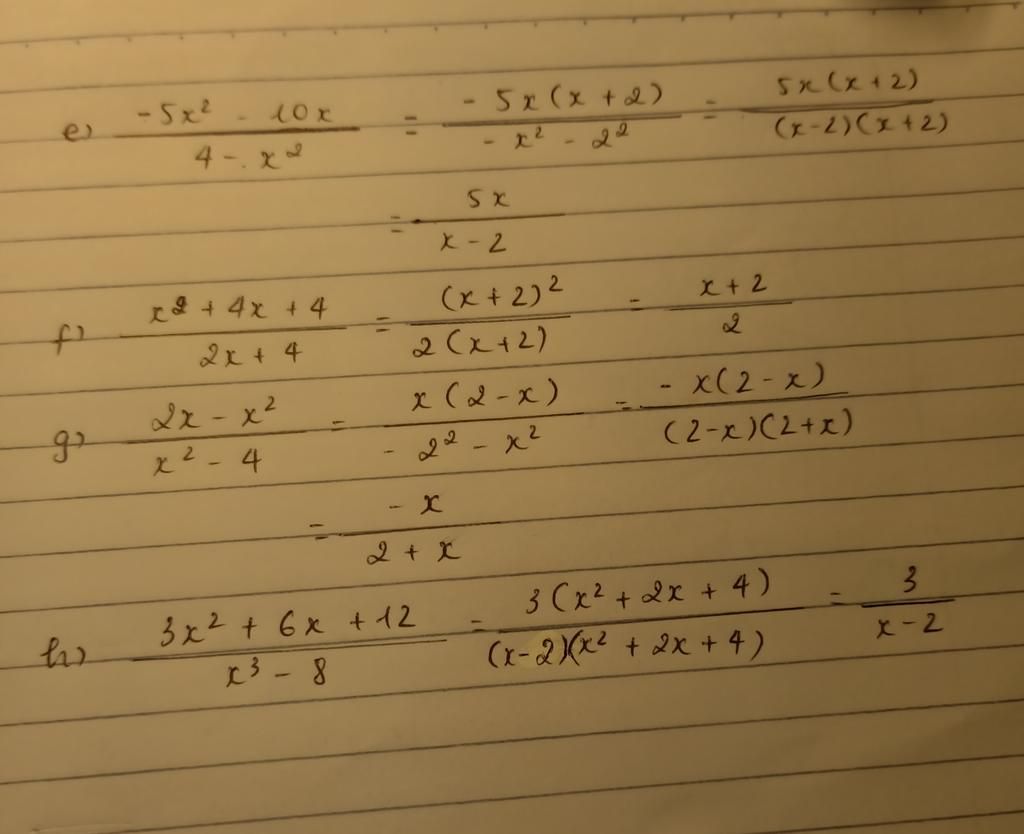 e) \frac{-5x^2 - 10x}{4 - x^2} = \frac{-5x(x+2)}{-x^2 - 2^2} = \frac{5x(x+2)}{(x-2)(x+2)}
= \frac{5x}{x-2}
f) \frac{x^2 + 4x + 4}{2x + 4} = \frac{(x+2)^2}{2(x+2)} = \frac{x+2}{2}
g) \frac{2x - x^2}{x^2 - 4} = \frac{x(2-x)}{-2^2 - x^2} = \frac{-x(2-x)}{(2-x)(2+x)}
= \frac{-x}{2+x}
h) \frac{3x^2 + 6x + 12}{x^3 - 8} = \frac{3(x^2 + 2x + 4)}{(x-2)(x^2 + 2x + 4)} = \frac{3}{x-2}